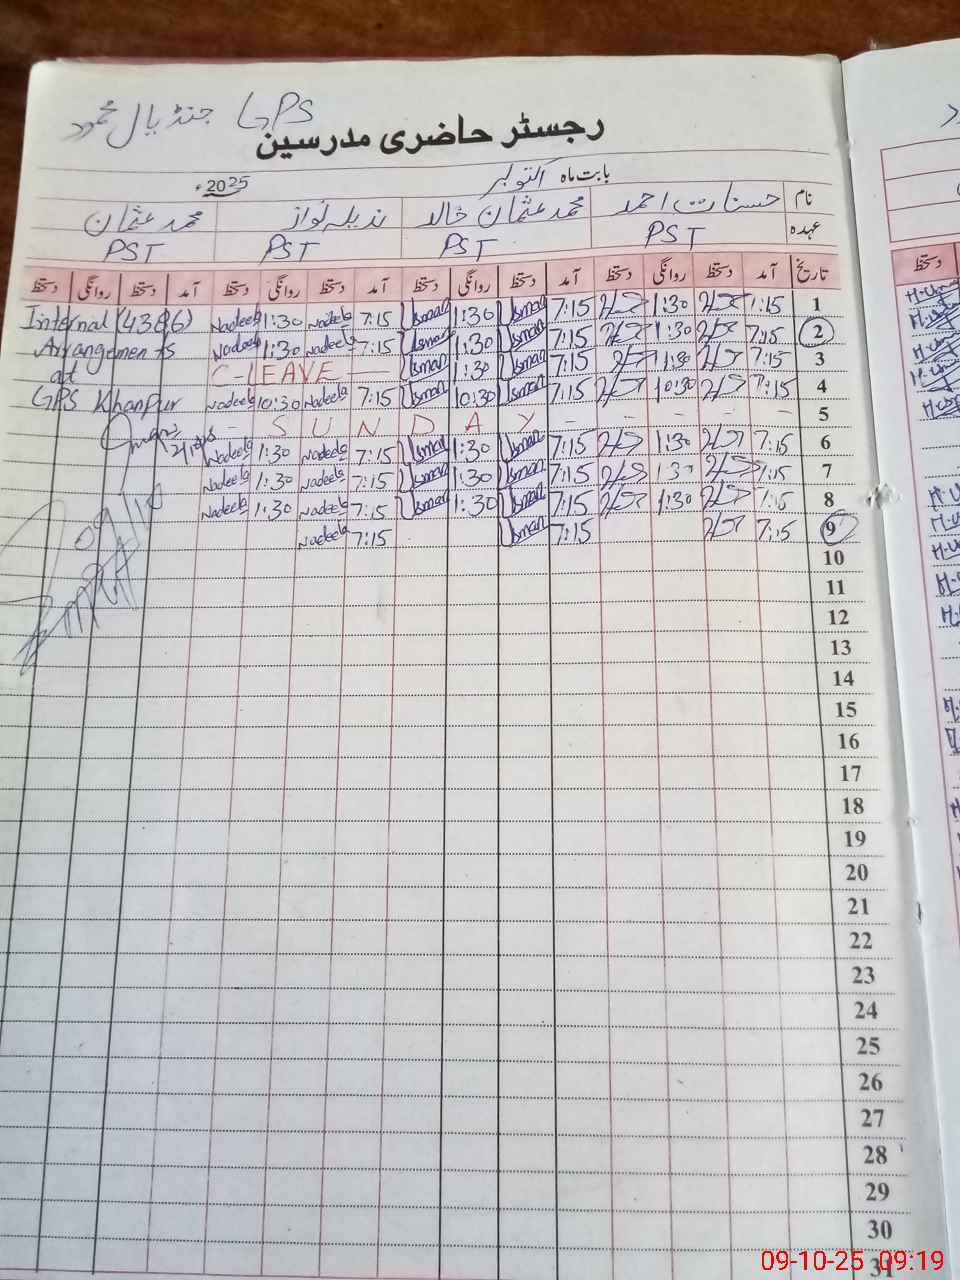 GPS جنڈیال محمود
رجسٹر حاضری مدرسین
بابت ماہ اکتوبر 2025ء
نام حسنات احمد محمد عثمان خالد نذیلہ نواز محمد عثمان
عہدہ PST PST PST PST
تاریخ آمد دستخط روانگی دستخط آمد دستخط روانگی دستخط آمد دستخط روانگی دستخط آمد دستخط روانگی دستخط
1 7:15 1:30 7:15 Usman 1:30 Usman 7:15 Nadeela 1:30 Nadeela Internal (4386)
2 7:15 1:30 7:15 Usman 1:30 Usman 7:15 Nadeela 1:30 Nadeela Arrangements
3 7:15 1:30 7:15 Usman 1:30 Usman C-LEAVE at
4 7:15 10:30 7:15 Usman 10:30 Usman 7:15 Nadeela 10:30 Nadeela GPS Khanpur
5 - S U N D A Y - - - - -
6 7:15 1:30 7:15 Usman 1:30 Usman 7:15 Nadeela 1:30 Nadeela
7 7:15 1:30 7:15 Usman 1:30 Usman 7:15 Nadeela 1:30 Nadeela
8 7:15 1:30 7:15 Usman 1:30 Usman 7:15 Nadeela 1:30 Nadeela
9 7:15 7:15 Usman 7:15 Nadeela
10
11
12
13
14
15
16
17
18
19
20
21
22
23
24
25
26
27
28
29
30
31
09-10-25 09:19